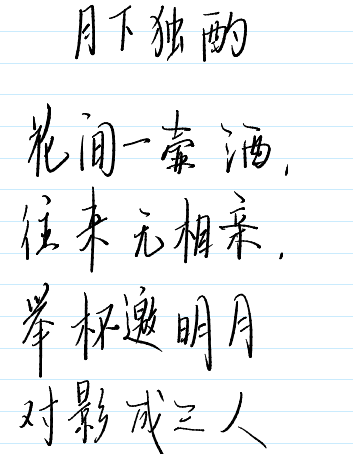 月下独酌
花间一壶酒,
往来无相亲,
举杯邀明月
对影成三人